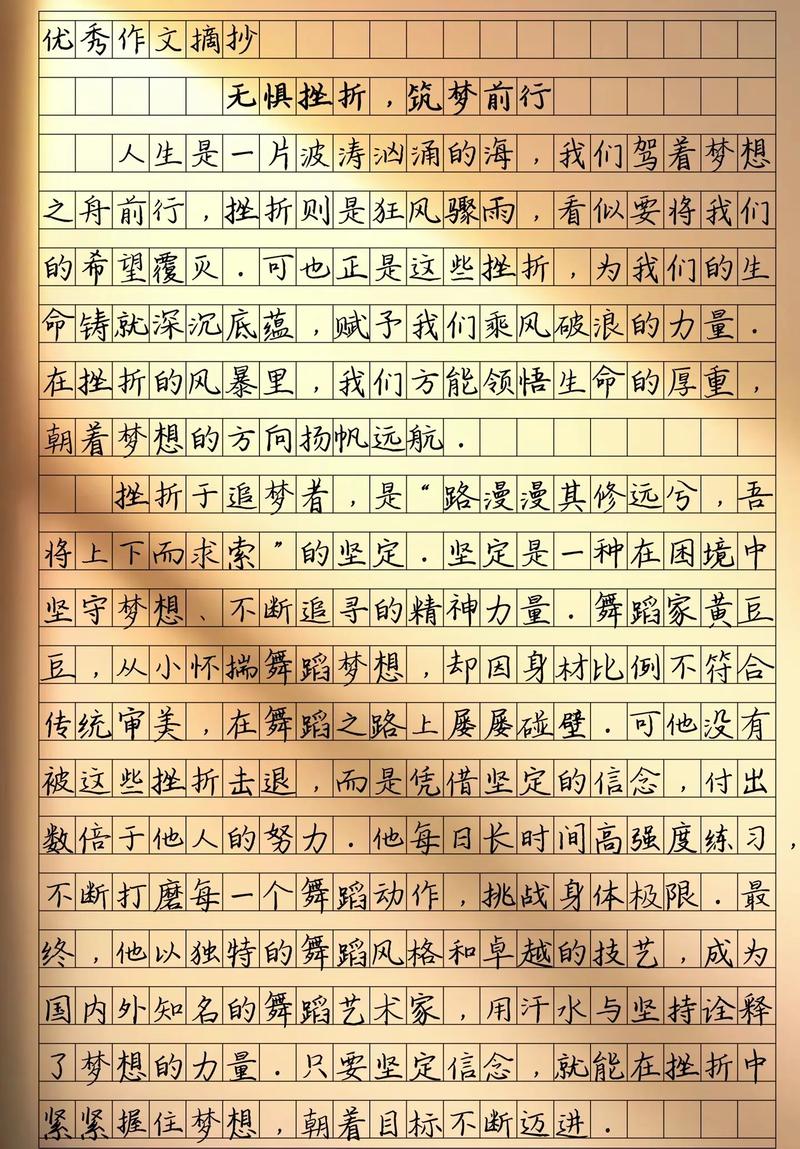 优秀作文摘抄
无惧挫折，筑梦前行
人生是一片波涛汹涌的海，我们驾着梦想
之舟前行，挫折则是狂风骤雨，看似要将我们
的希望覆灭．可也正是这些挫折，为我们的生
命铸就深沉底蕴，赋予我们乘风破浪的力量．
在挫折的风暴里，我们方能领悟生命的厚重，
朝着梦想的方向扬帆远航．
挫折于追梦者，是“路漫漫其修远兮，吾
将上下而求索”的坚定．坚定是一种在困境中
坚守梦想、不断追寻的精神力量．舞蹈家黄豆
豆，从小怀揣舞蹈梦想，却因身材比例不符合
传统审美，在舞蹈之路上屡屡碰壁．可他没有
被这些挫折击退，而是凭借坚定的信念，付出
数倍于他人的努力．他每日长时间高强度练习，
不断打磨每一个舞蹈动作，挑战身体极限．最
终，他以独特的舞蹈风格和卓越的技艺，成为
国内外知名的舞蹈艺术家，用汗水与坚持诠释
了梦想的力量．只要坚定信念，就能在挫折中
紧紧握住梦想，朝着目标不断迈进．